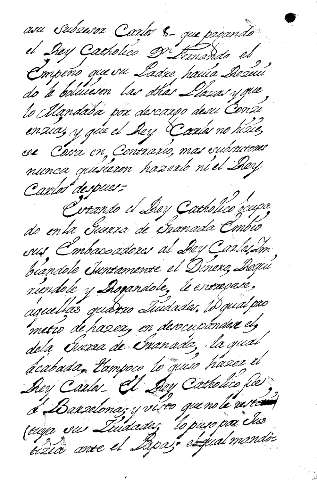 a su subcesor Carlo 8- que pagando
el Rey Catholico Dn Fernando el
Empeño que su Padre, havia
le bolviesen las dhas Plazas y que
lo Mandaba por descargo de su Conci
encia, y que el Rey Carlos no hizie
se Cosa en Contrario, mas subcesores
nunca quisieron hazerlo ni el Rey
Carlos despues.
Estando el Rey Catholico ocupa
do en la Guerra de Granada Embio
sus Embaxadores al Rey Carlos, Em
biandole Juntamente el Dinero, Requi
riendole y Rogandole, le entregase,
aquellas quatro Ciudades, lo qual pro
metio de hazer, en
de la Guerra de Granada, la qual
acabada, tampoco lo quiso hazer el
Rey Carlos. El Rey Catholico fue
a Barzelona, y visto que no le resti
tuyo sus Ciudades, lo puso por Jus
tizia ante el Papa, el qual mando